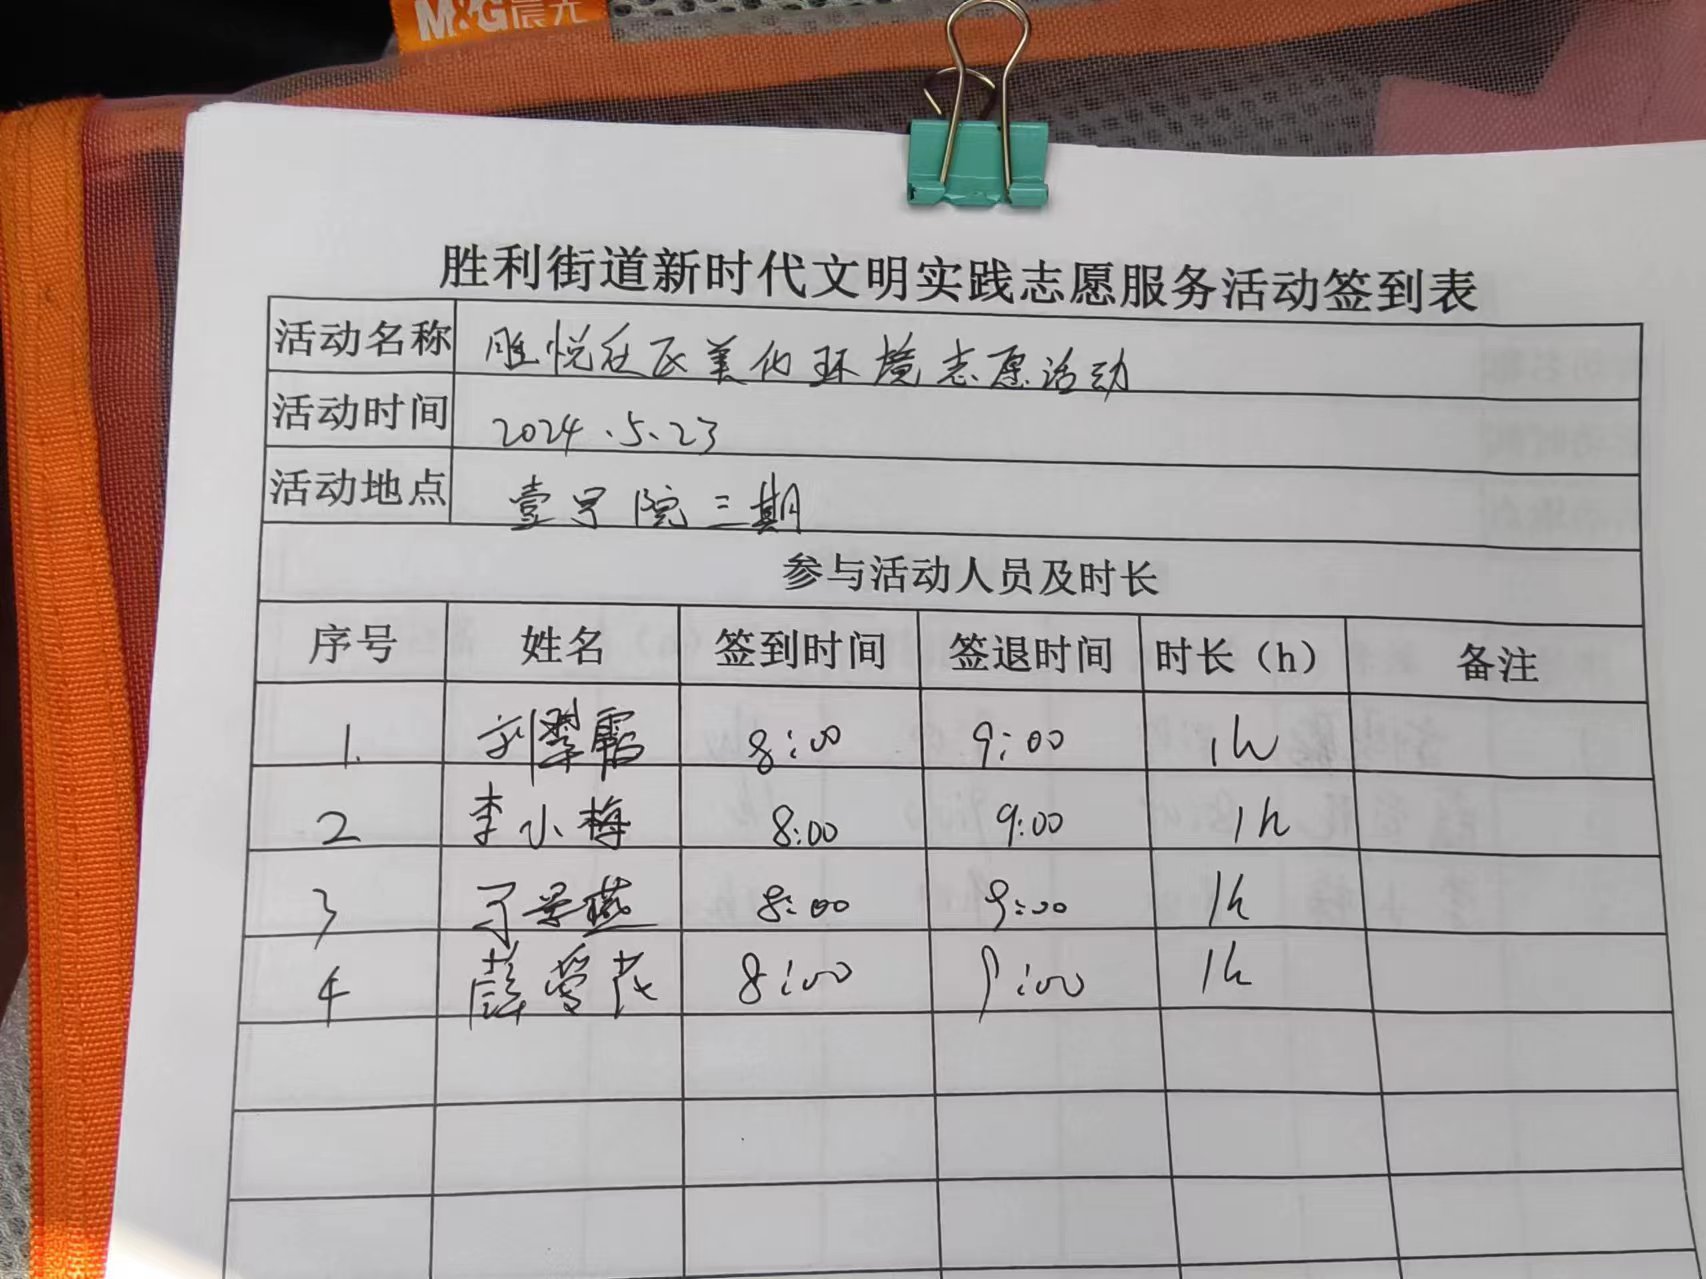 M&G晨光
胜利街道新时代文明实践志愿服务活动签到表
活动名称 胜悦社区美化环境志愿活动
活动时间 2024.5.23
活动地点 壹号院三期
参与活动人员及时长
序号 姓名 签到时间 签退时间 时长（h） 备注
1. 刘翠霞 8:00 9:00 1h
2 李小梅 8:00 9:00 1h
3 丁学燕 8:00 9:00 1h
4 薛雪茂 8:00 9:00 1h